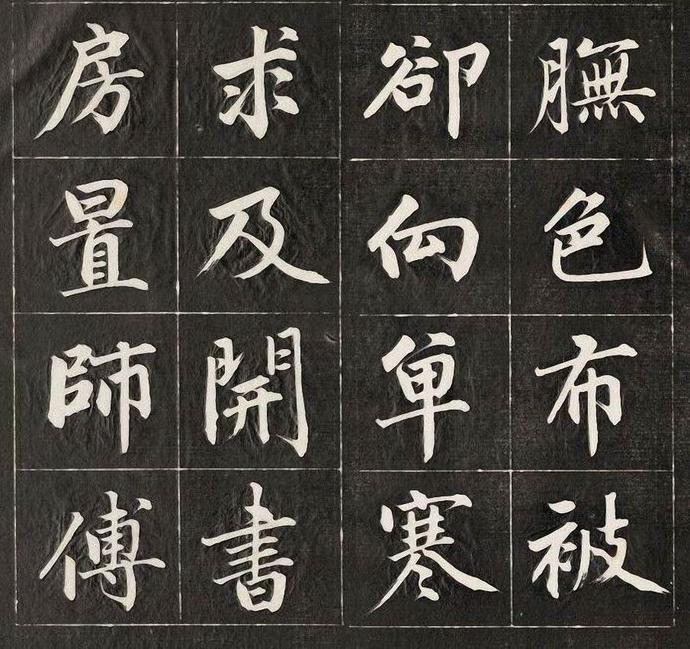 膴色布被
卻向單寒
求及開書
房置師傅